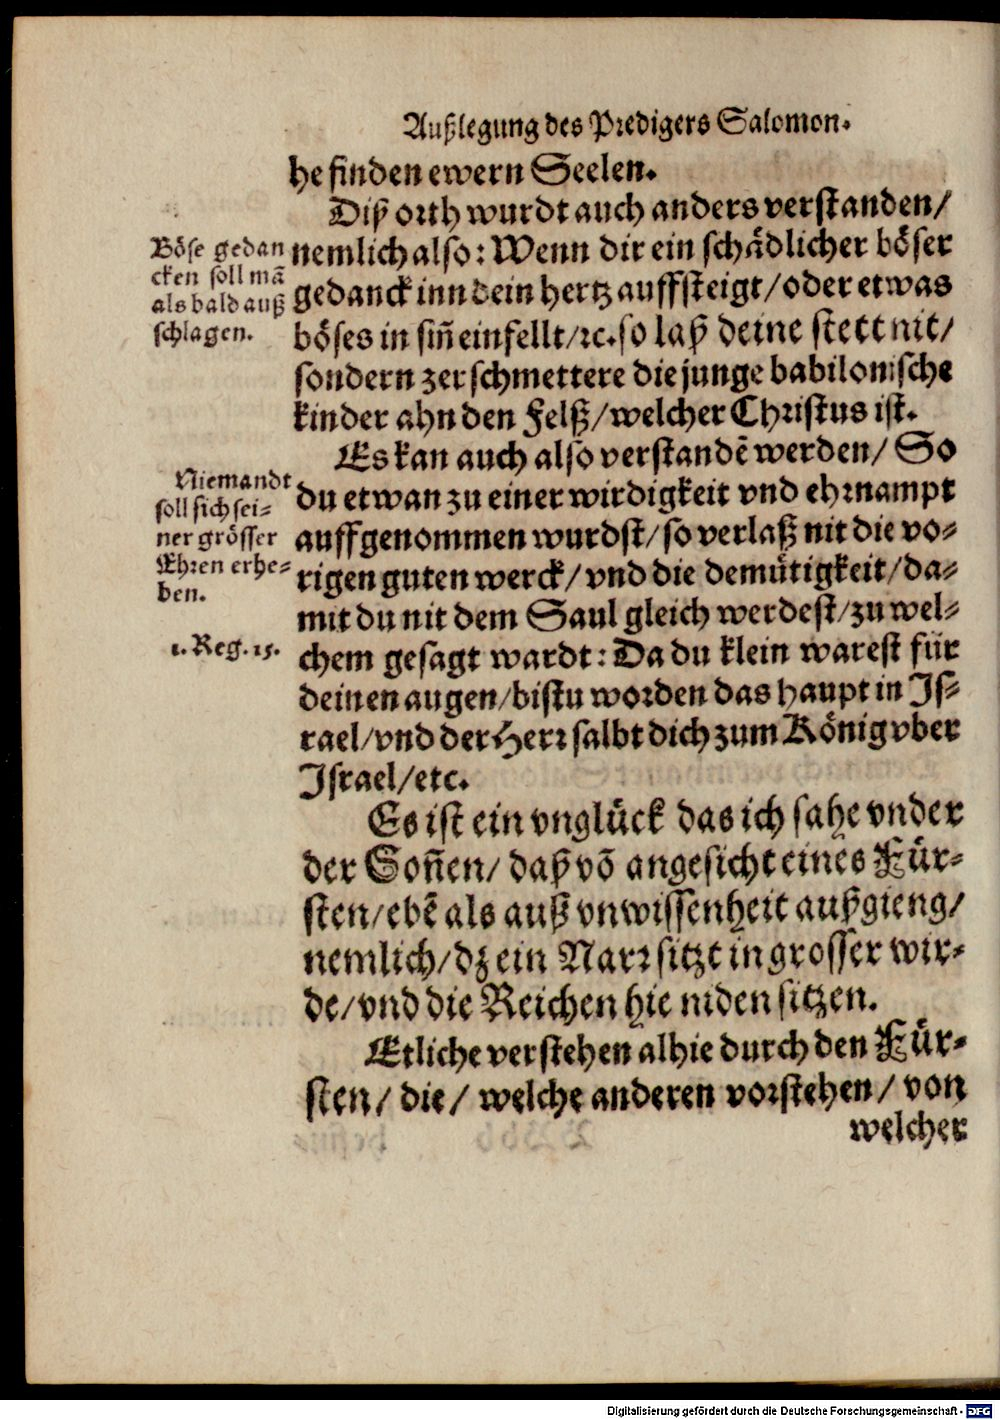 Außlegung des Predigers Salomon.
he finden ewern Seelen.
Diß orth wurdt auch anders verstanden/
nemlich also: Wenn dir ein schädlicher böser
gedanck inn dein hertz auffsteigt/oder etwas
böses in siñ einfellt/ꝛc. so laß deine stett nit/
sondern zerschmettere die junge babilonische
kinder ahn den Felß/welcher Christus ist.
Böse gedan
cken soll mā
als bald auß
schlagen.
Es kan auch also verstandē werden/ So
du etwan zu einer wirdigkeit vnd ehrnampt
auffgenommen wurdst/so verlaß nit die vo-
rigen guten werck/vnd die demütigkeit/da-
mit du nit dem Saul gleich werdest/zu wel-
chem gesagt wardt: Da du klein warest für
deinen augen/bistu worden das haupt in Js-
rael/vnd der Herr salbt dich zum König vber
Jsrael/etc.
Niemandt
soll sich sei-
ner grösser
Ehren erhe-
ben.
1. Reg. 15.
Es ist ein vnglück das ich sahe vnder
der Soñen/ daß vō angesicht eines Für-
sten/ebē als auß vnwissenheit außgieng/
nemlich/dz ein Narr sitzt in grosser wir-
de/vnd die Reichen hie niden sitzen.
Etliche verstehen alhie durch den Für-
sten/ die/ welche anderen vorstehen/ von
welcher
Digitalisierung gefördert durch die Deutsche Forschungsgemeinschaft - DFG